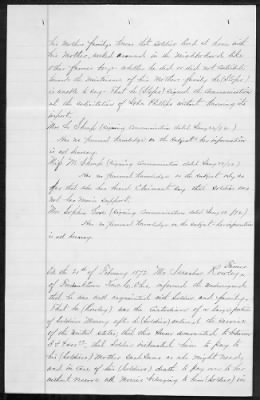 his mother & family. Knows that Soldier lived at home with
his Mother, worked around in the Neighborhood like
other farmer boys - whether he did or did not contribute
toward the maintenance of his Mother's family he (Shafe)
is unable to say - That he signed the communication
at the solicitation of John Phillips without knowing its
import.
Mrs (Signing Communication dated Aug
Has no personal knowledge on the subject - her information
is all hearsay.
M. Sharp (Signing Communication dated Aug
Has no personal knowledge on the subject only so
far that she has heard Claimant say that Soldier was
not her Main Support.
Mrs Sophia (Signing Communication dated Aug
Has no personal knowledge on the subject - her information
is all hearsay.
On the 21st of February 1872 Mr Rowley
of Township Ohio informed the undersigned
that he was well acquainted with Soldier and family,
That he (Rowley) was the Custodian of a large portion
of Soldiers Money after he (Soldier) entered the service
of the United States, that this Money amounted to between
& that Soldier instructed him to pay to
his (Soldiers) Mother such sums as she might need,
and in case of his (Soldiers) death to pay over to her
without reserve all Monies belonging to him (Soldier) in